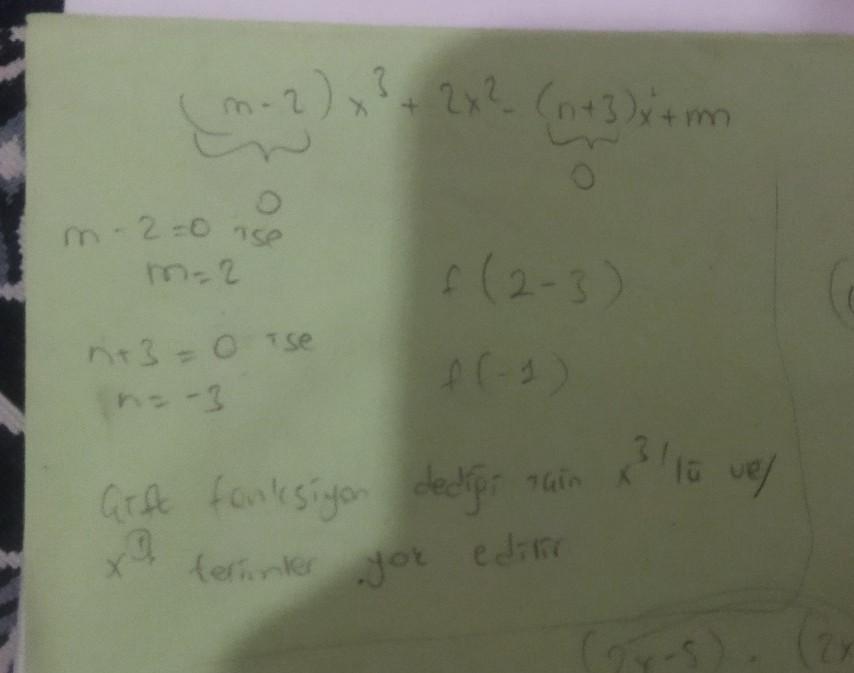 (m-2)x³ + 2x² - (n+3)x¹ + m
0
0
m - 2 = 0 ise
m = 2
f(2-3)
n+3 = 0 ise
n = -3
f(-1)
Çift fonksiyon dediği için x³'lü ve
x¹ terimler yok edilir
(2x-5) . (2x